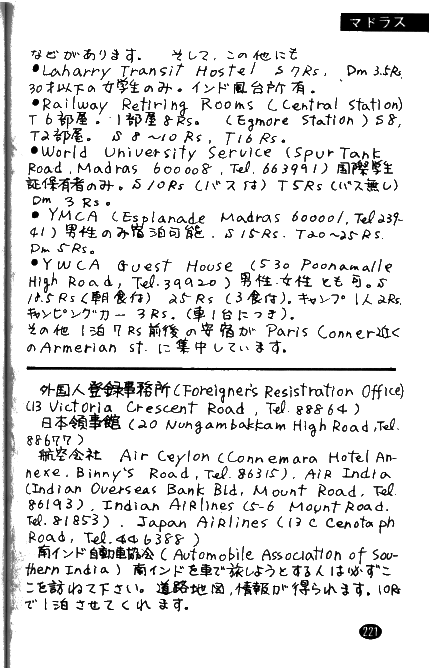 マドラス
などがあります。 そして、この他にも
●Laharry Transit Hostel S7Rs, Dm3.5Rs,
30才以下の女学生のみ。インド風台所有。
●Railway Retiring Rooms (Central Station)
T6部屋。1部屋8Rs. (Egmore Station) S8,
T2部屋。 S8~10Rs, T16Rs.
●World University Service (Spur Tank
Road, Madras 600008, Tel. 663991) 国際学生
証保有者のみ。S10Rs(バス付) T5Rs(バス無し)
Dm 3Rs.
●YMCA (Esplanade Madras 600001, Tel 239-
41) 男性のみ宿泊可能. S15Rs. T20~25Rs.
Dm 5Rs.
●YWCA Guest House (530 Poonamalle
High Road, Tel. 39920) 男性.女性とも可。S
18.5Rs(朝食付) 25Rs(3食付)。キャンプ1人2Rs.
キャンピングカー 3Rs. (車1台につき)。
その他1泊7Rs前後の安宿がParis Conner近く
のArmerian st. に集中しています。
外国人登録事務所(Foreigner's Resistration Office)
(13 Victoria Crescent Road, Tel. 88864)
日本領事館(20 Nungambakkam High Road, Tel.
88677)
航空会社 Air Ceylon (Connemara Hotel An-
nexe. Binny's Road, Tel. 86315). AiR India
(Indian Overseas Bank Bld, Mount Road, Tel.
86193), Indian AiRlines (5-6 Mount Road.
Tel. 81853). Japan AiRlines (13 C Cenotaph
Road, Tel. 446388)
南インド自動車協会(Automobile Association of Sou-
thern India) 南インドを車で旅しようとする人は必ずこ
こを訪ねて下さい。道路地図,情報が得られます。10Rs
で1泊させてくれます。
221